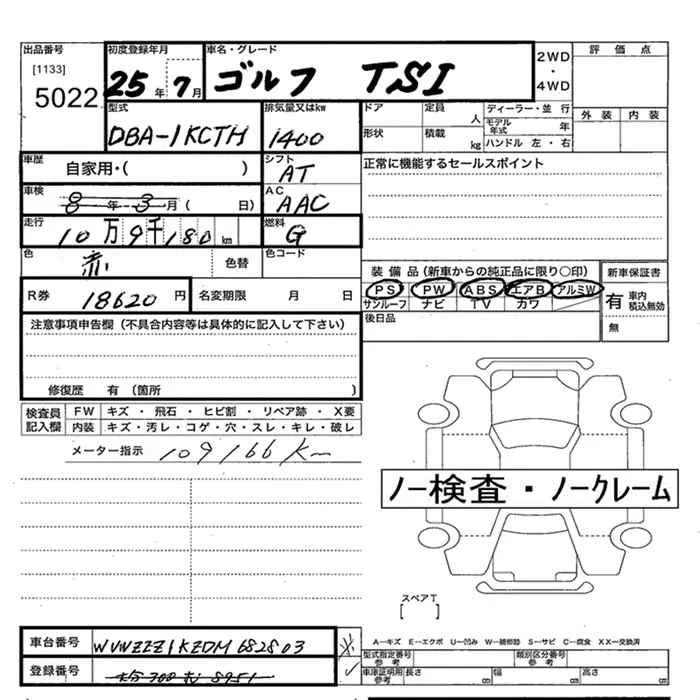 出品番号 初度登録年月 車名・グレード 2WD ・ 4WD 評価点
[1133]
5022 25年 7月 ゴルフ TSI
外装 内装
型式 排気量又はkw ドア 定員 人 ディーラー・並行
DBA-1KCTH 1400 形状 積載 kg モデル年式 年
ハンドル 左・右
車歴 自家用・( ) シフト AT 正常に機能するセールスポイント
車検 8年 3月 ( 日) AC AAC
走行 10万9千180km 燃料 G
色 赤 色替 色コード
装備品(新車からの純正品に限り○印) 新車保証書
R券 18620円 名変期限 月 日
PS PW ABS エアB アルミW 有 車内 税込無効
サンルーフ ナビ TV カワ 無
注意事項申告欄(不具合内容等は具体的に記入して下さい) 後日品
修復歴 有(箇所 )
検査員記入欄 FW キズ・飛石・ヒビ割・リペア跡・X要
内装 キズ・汚レ・コゲ・穴・スレ・キレ・破レ
メーター指示 109166K
ノー検査・ノークレーム
スペアT
[ ]
車台番号 WVWZZZ1KZDM682803
A−キズ E−エクボ U−凹み W−補修跡 S−サビ C−腐食 XX−交換済
登録番号
型式指定番号 参考 類別区分番号 参考
車庫証明用 参考 長さ cm 幅 cm 高さ cm